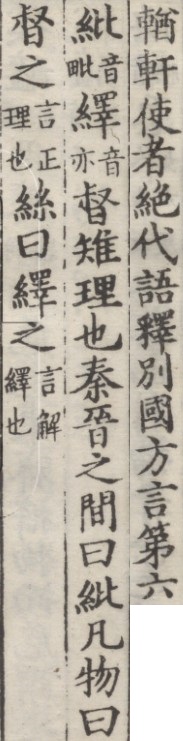 輶軒使者絶代語釋別國方言第六
紕音毗繹音亦督雉理也秦晉之間曰紕凡物曰
督之言正理也絲曰繹之言解繹也